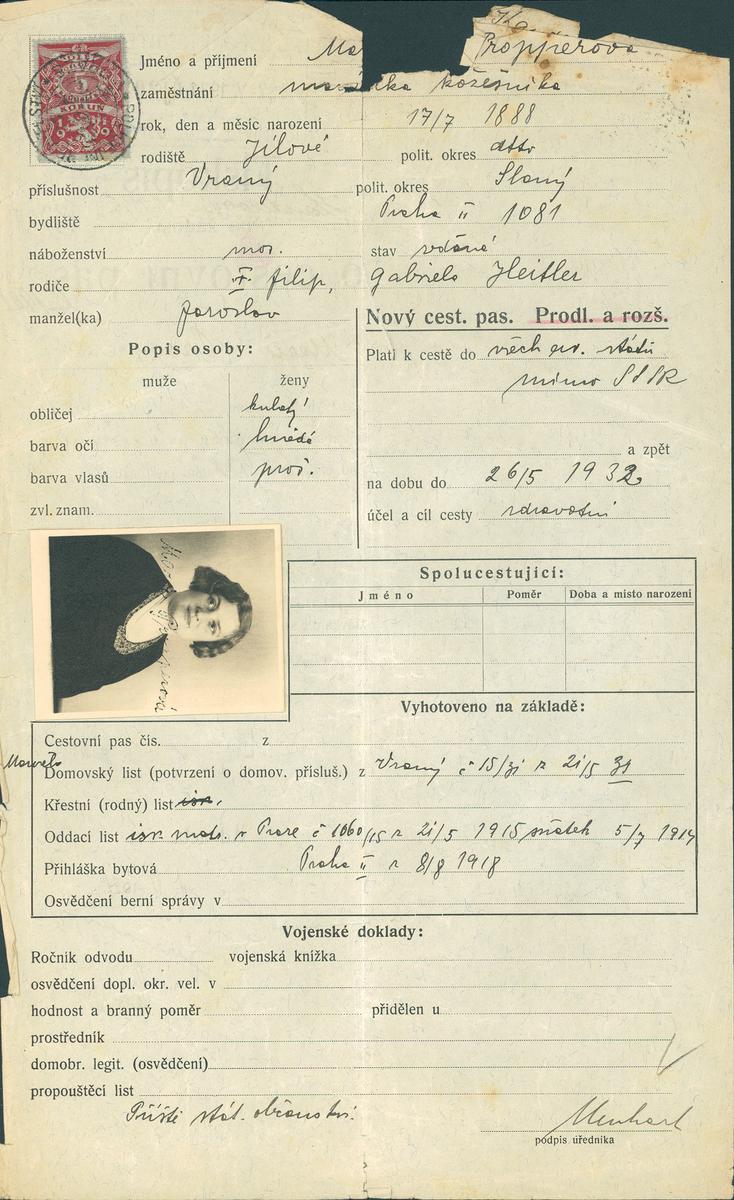 Jméno a příjmení Ma Propperova
zaměstnání manželka kožešníka
rok, den a měsíc narození 17/7 1888
rodiště Jílové polit. okres dtto
příslušnost Vraný polit. okres Slaný
bydliště Praha II 1081
náboženství mos. stav vdaná
rodiče Filip, Gabriela Heitler
manžel(ka) Jaroslav
Nový cest. pas. Prodl. a rozš.
Popis osoby:
muže ženy
Platí k cestě do všech ev. států
mimo SSSR
obličej kulatý
barva očí hnědé
barva vlasů proš.
zvl. znam.
a zpět
na dobu do 26/5 1932
účel a cíl cesty zdravotní
Spolucestující:
Jméno Poměr Doba a místo narození
Vyhotoveno na základě:
Cestovní pas čís. z
Domovský list (potvrzení o domov. přísluš.) z Vraný č 15/31 z 21/5 31
Křestní (rodný) list isr.
Oddací list isr. matr. v Praze č 1060/15 z 21/5 1915 sňatek 5/7 1914
Přihláška bytová Praha II z 8/8 1918
Osvědčení berní správy v
Vojenské doklady:
Ročník odvodu vojenská knížka
osvědčení dopl. okr. vel. v
hodnost a branný poměr přidělen u
prostředník
domobr. legit. (osvědčení)
propouštěcí list
Příště stát. občanství.
podpis úředníka